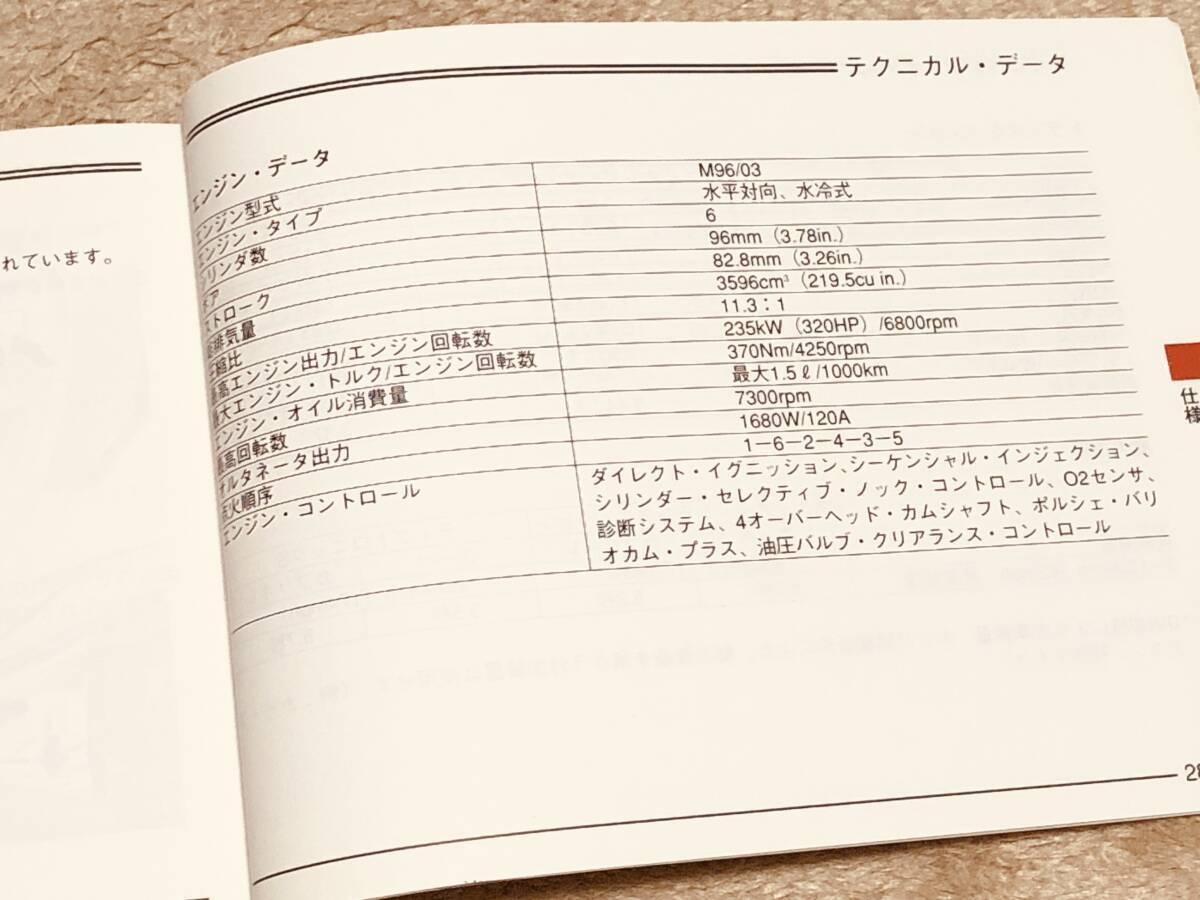 れています。
テクニカル・データ
エンジン・データ
エンジン型式 M96/03
エンジン・タイプ 水平対向、水冷式
シリンダ数 6
ボア 96mm（3.78in.）
ストローク 82.8mm（3.26in.）
総排気量 3596cm³（219.5cu in.）
圧縮比 11.3：1
最高エンジン出力/エンジン回転数 235kW（320HP）/6800rpm
最大エンジン・トルク/エンジン回転数 370Nm/4250rpm
エンジン・オイル消費量 最大1.5ℓ/1000km
最高回転数 7300rpm
オルタネータ出力 1680W/120A
点火順序 1－6－2－4－3－5
エンジン・コントロール ダイレクト・イグニッション、シーケンシャル・インジェクション、
シリンダー・セレクティブ・ノック・コントロール、O2センサ、
診断システム、4オーバーヘッド・カムシャフト、ポルシェ・バリ
オカム・プラス、油圧バルブ・クリアランス・コントロール
仕様